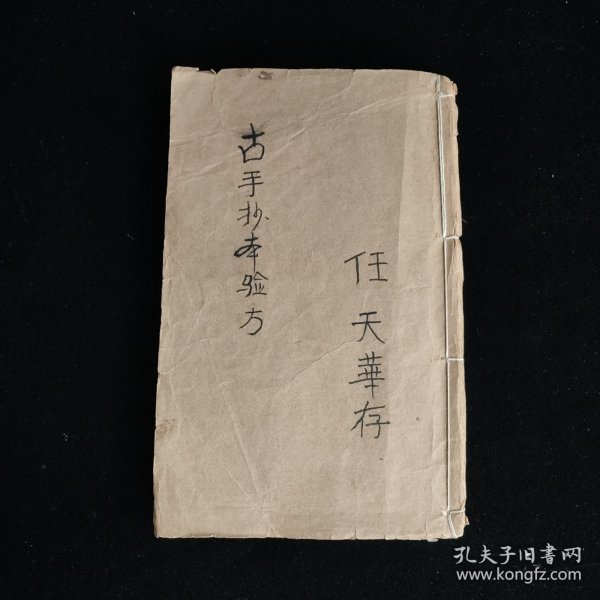 古手抄本验方
任天華存
孔夫子旧書网
www.kongfz.com